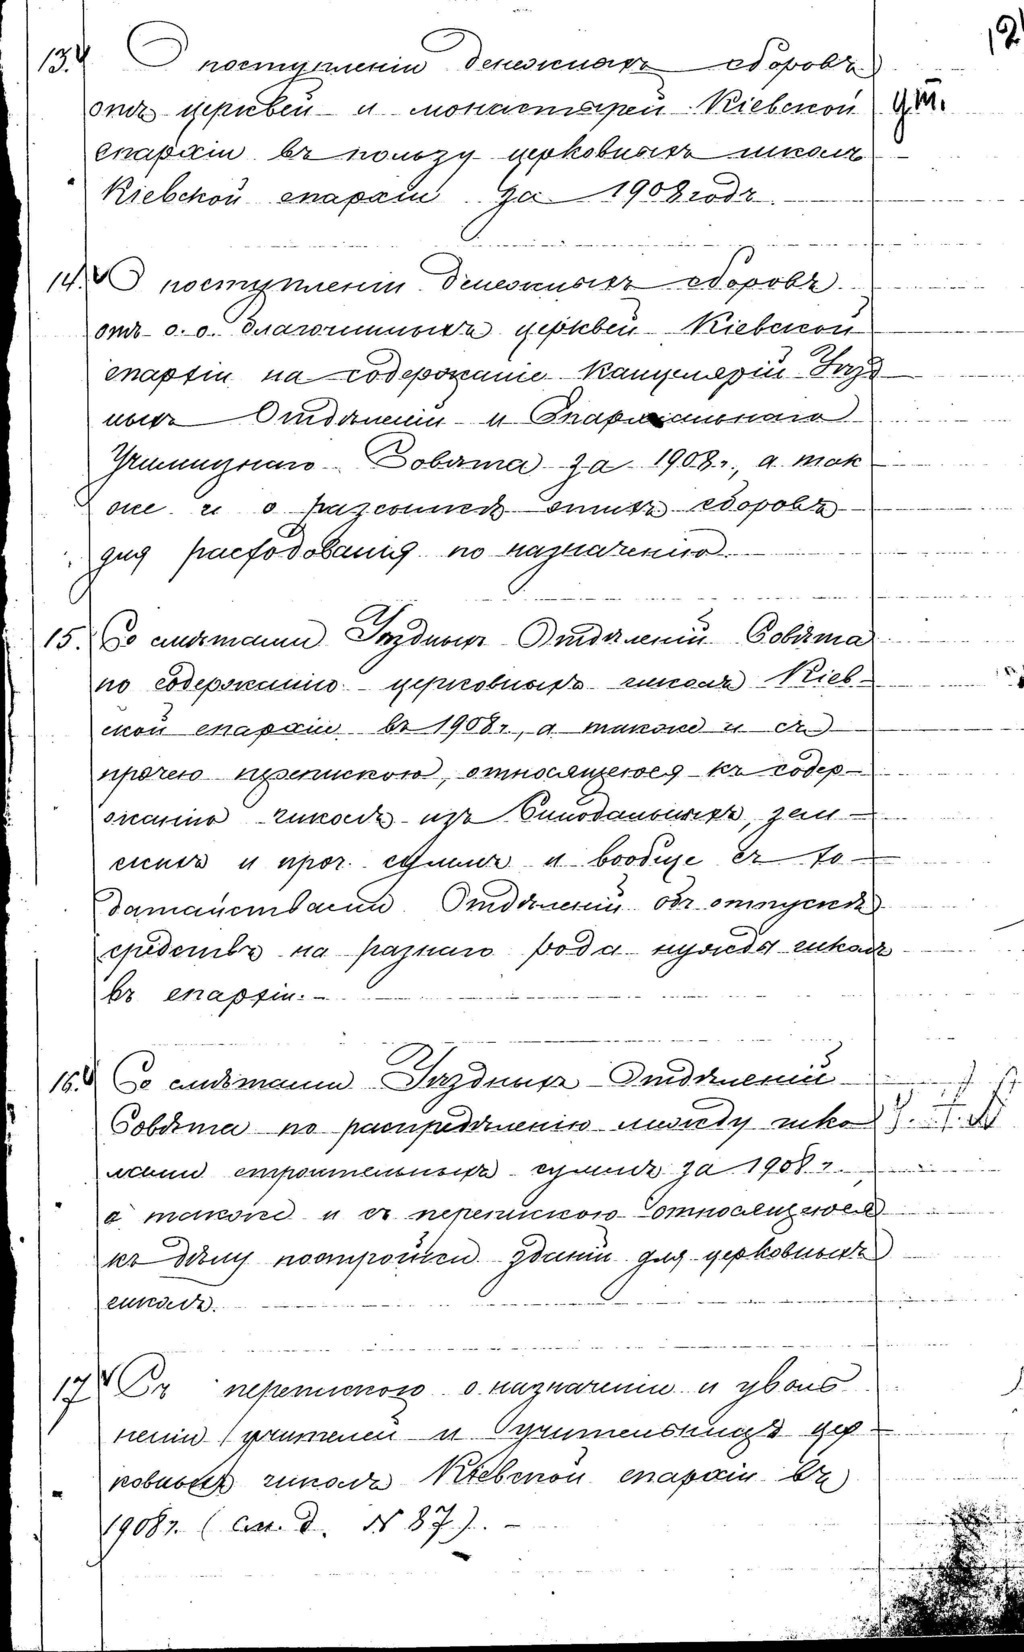 13. О поступленіи денежныхъ сборовъ
отъ церквей и монастырей Кіевской
епархіи въ пользу церковныхъ школъ
Кіевской епархіи за 1908 годъ.
14. О поступленіи денежныхъ сборовъ
отъ о.о. благочинныхъ церквей Кіевской
епархіи на содержаніе Канцелярій Уѣзд
ныхъ Отдѣленій и Епархіальнаго
Училищнаго Совѣта за 1908 г., а так
же и о разсылкѣ этихъ сборовъ
для расходованія по назначенію.
15. Со смѣтами Уѣздныхъ Отдѣленій Совѣта
по содержанію церковныхъ школъ Кіев-
ской епархіи въ 1908 г., а также и съ
прочею перепискою, относящеюся къ содер-
жанію школъ изъ Синодальныхъ, зем-
скихъ и проч. суммъ и вообще съ хо-
датайствами Отдѣленій объ отпускѣ
средствъ на разнаго рода нужды школъ
въ епархіи.-
16. Со смѣтами Уѣздныхъ Отдѣленій
Совѣта по распредѣленію между шко
лами строительныхъ суммъ за 1908 г.
а также и съ перепискою относящеюся
къ дѣлу постройки зданій для церковныхъ
школъ.
17 Съ перепискою о назначеніи и уволь
неніи учителей и учительницъ цер-
ковныхъ школъ Кіевской епархіи въ
1908 г. (см. д. № 87). -